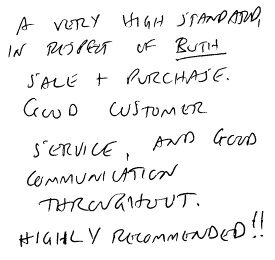 A VERY HIGH STANDARD,
IN RESPECT OF BOTH
SALE + PURCHASE.
GOOD CUSTOMER
SERVICE, AND GOOD
COMMUNICATION
THROUGHOUT.
HIGHLY RECOMMENDED!!